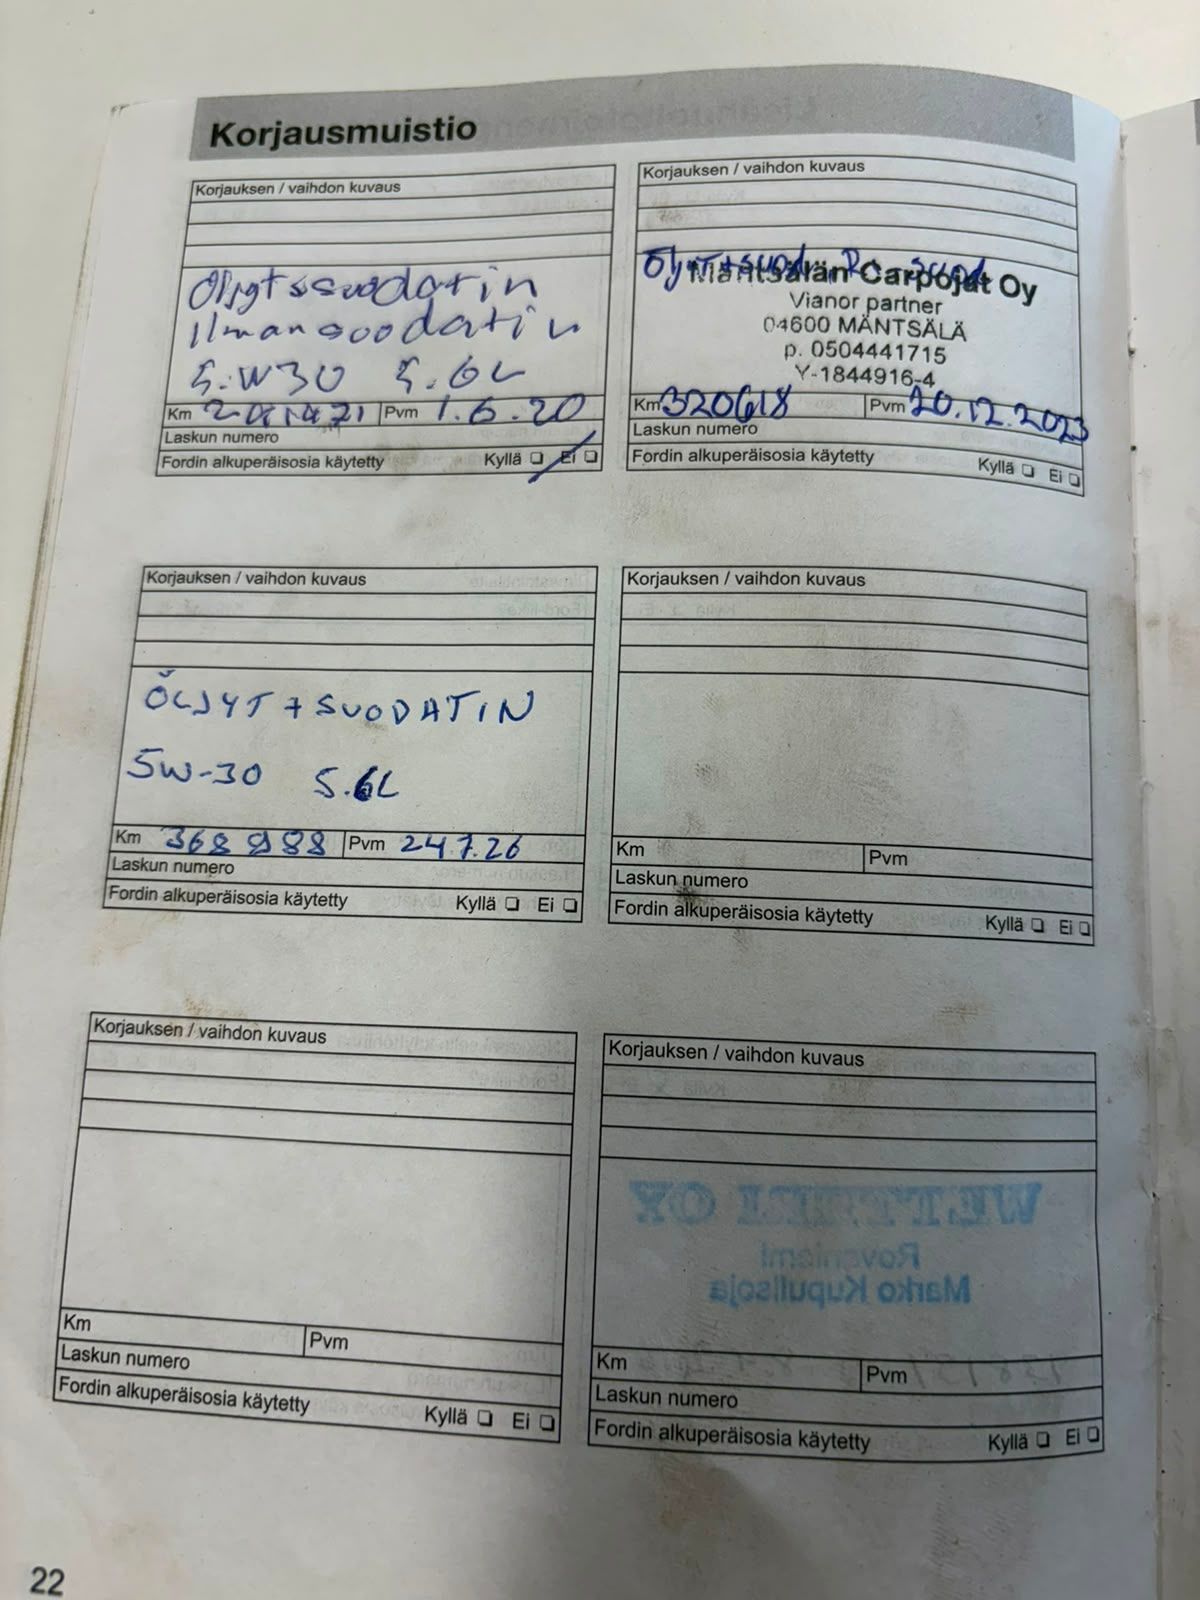 Korjausmuistio
Korjauksen / vaihdon kuvaus
Öljyt + suodatin
Ilmansuodatin
5.W30 5.6L
Km
Pvm 1.6.20
Laskun numero
Fordin alkuperäisosia käytetty Kyllä Ei
Korjauksen / vaihdon kuvaus
Öljyt + suod,
Mäntsälän Carpojat Oy
Vianor partner
04600 MÄNTSÄLÄ
p. 0504441715
Y-1844916-4
Km 320618 Pvm 20.12.2023
Laskun numero
Fordin alkuperäisosia käytetty Kyllä Ei
Korjauksen / vaihdon kuvaus
ÖLJYT + SUODATIN
5W-30 5.6L
Km 368 988 Pvm 24.7.26
Laskun numero
Fordin alkuperäisosia käytetty Kyllä Ei
Korjauksen / vaihdon kuvaus
Km Pvm
Laskun numero
Fordin alkuperäisosia käytetty Kyllä Ei
Korjauksen / vaihdon kuvaus
Km Pvm
Laskun numero
Fordin alkuperäisosia käytetty Kyllä Ei
Korjauksen / vaihdon kuvaus
Rovaniemi
Marko Kupulisoja
Km Pvm
Laskun numero
Fordin alkuperäisosia käytetty Kyllä Ei
22